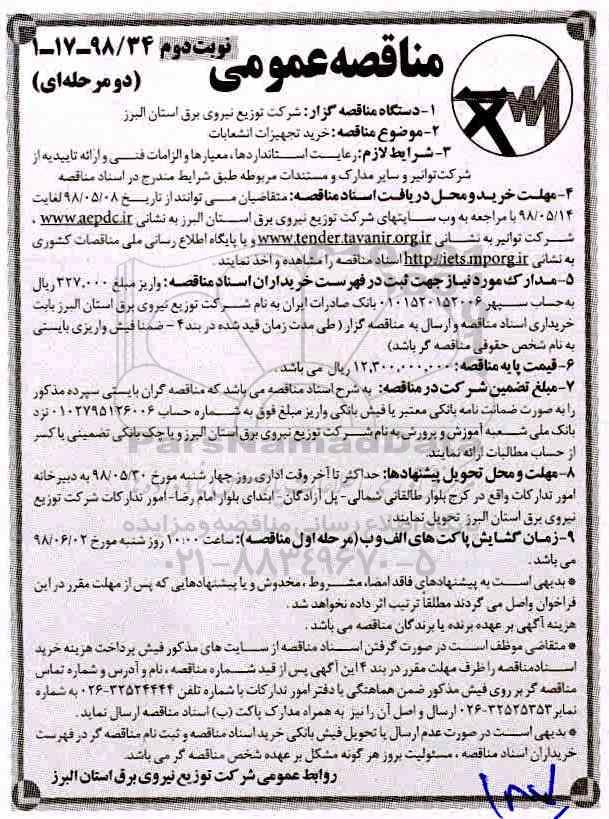 مناقصه عمومی
نوبت دوم ۹۸/۳۴-۱۷-۱
(دو مرحله‌ای)
۱- دستگاه مناقصه گزار: شرکت توزیع نیروی برق استان البرز
۲- موضوع مناقصه: خرید تجهیزات انشعابات
۳- شرایط لازم: رعایت استانداردها، معیارها و الزامات فنی و ارائه تاییدیه از
شرکت توانیر و سایر مدارک و مستندات مربوطه طبق شرایط مندرج در اسناد مناقصه
۴- مهلت خرید و محل دریافت اسناد مناقصه: متقاضیان می توانند از تاریخ ۹۸/۰۵/۰۸ لغایت
۹۸/۰۵/۱۴ با مراجعه به وب سایتهای شرکت توزیع نیروی برق استان البرز به نشانی www.aepdc.ir ،
شرکت توانیر به نشانی www.tender.tavanir.org.ir و یا پایگاه اطلاع رسانی ملی مناقصات کشوری
به نشانی http://iets.mporg.ir اسناد مناقصه را مشاهده و اخذ نمایند .
۵- مدارک مورد نیاز جهت ثبت در فهرست خریداران اسناد مناقصه: واریز مبلغ ۳۲۷.۰۰۰ ریال
به حساب سپهر ۰۱۰۱۵۲۰۱۵۲۰۰۶ بانک صادرات ایران به نام شرکت توزیع نیروی برق استان البرز بابت
خریداری اسناد مناقصه و ارسال به مناقصه گزار ( طی مدت زمان قید شده در بند ۴ - ضمنا فیش واریزی بایستی
به نام شخص حقوقی مناقصه گر باشد)
۶- قیمت پایه مناقصه: ۱۲.۳۰۰.۰۰۰.۰۰۰ ریال می باشد .
۷- مبلغ تضمین شرکت در مناقصه: به شرح اسناد مناقصه می باشد که مناقصه گران بایستی سپرده مذکور
را به صورت ضمانت نامه بانکی معتبر یا فیش بانکی واریز مبلغ فوق به شماره حساب ۰۱۰۲۷۹۵۱۲۶۰۰۶ نزد
بانک ملی شعبه آموزش و پرورش به نام شرکت توزیع نیروی برق استان البرز و یا چک بانکی تضمینی یا کسر
از حساب مطالبات ارائه نمایند.
۸- مهلت و محل تحویل پیشنهادها: حداکثر تا آخر وقت اداری روز چهار شنبه مورخ ۹۸/۰۵/۳۰ به دبیرخانه
امور تدارکات واقع در کرج بلوار طالقانی شمالی- پل آزادگان- ابتدای بلوار امام رضا- امور تدارکات شرکت توزیع
نیروی برق استان البرز تحویل نمایند.
۹- زمان گشایش پاکت های الف و ب (مرحله اول مناقصه): ساعت ۱۰:۰۰ روز شنبه مورخ ۹۸/۰۶/۰۲
می باشد .
* بدیهی است به پیشنهادهای فاقد امضاء، مشروط ، مخدوش و یا پیشنهادهایی که پس از مهلت مقرر در این
فراخوان واصل می گردند مطلقاً ترتیب اثر داده نخواهد شد .
هزینه آگهی بر عهده برنده یا برندگان مناقصه می باشد .
* متقاضی موظف است در صورت گرفتن اسناد مناقصه از سایت های مذکور فیش پرداخت هزینه خرید
اسنادمناقصه را ظرف مهلت مقرر در بند ۴ این آگهی پس از قید شماره مناقصه ، نام و آدرس و شماره تماس
مناقصه گر بر روی فیش مذکور ضمن هماهنگی با دفتر امور تدارکات با شماره تلفن ۳۲۵۲۴۴۴۴-۰۲۶ به شماره
نمابر ۳۲۵۲۵۳۵۳-۰۲۶ ارسال و اصل آن را نیز به همراه مدارک پاکت (ب) اسناد مناقصه ارسال نماید .
* بدیهی است در صورت عدم ارسال یا تحویل فیش بانکی خرید اسناد مناقصه و ثبت نام مناقصه گر در فهرست
خریداران اسناد مناقصه ، مسئولیت بروز هر گونه مشکل بر عهده شخص مناقصه گر می باشد.
روابط عمومی شرکت توزیع نیروی برق استان البرز
ParsNamadData
۰۲۱-۸۸۳۴۹۶۷۰-۵